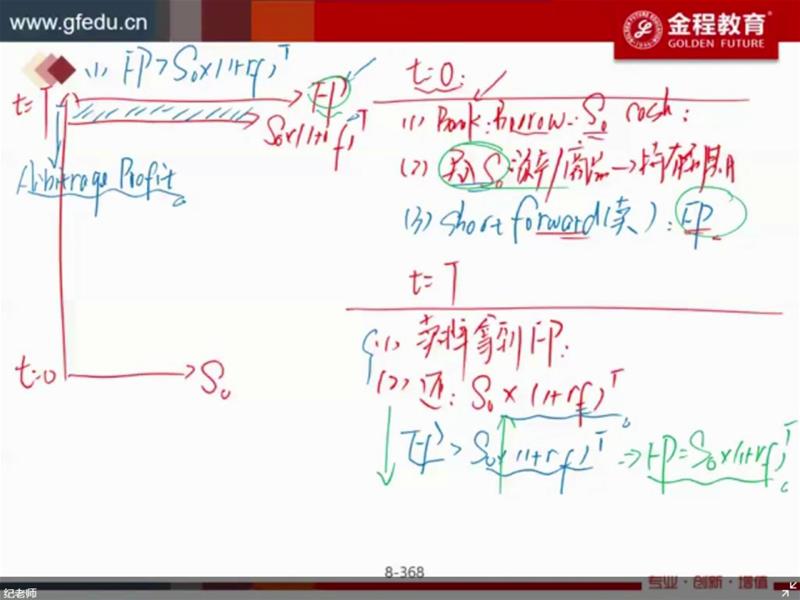 www.gfedu.cn
金程教育
GOLDEN FUTURE
(1) FP > S₀×(1+rf)^T
t=T
FP
S₀×(1+rf)^T
Arbitrage Profit
t=0
S₀
t=0:
(1) Bank: borrow S₀ cash:
(2) S₀
(3) short forward(卖): FP
t=T
(1) 卖掉拿到FP:
(2) 还: S₀×(1+rf)^T
FP > S₀×(1+rf)^T ⇒ FP=S₀×(1+rf)^T
8-368
专业·创新·增值
纪老师